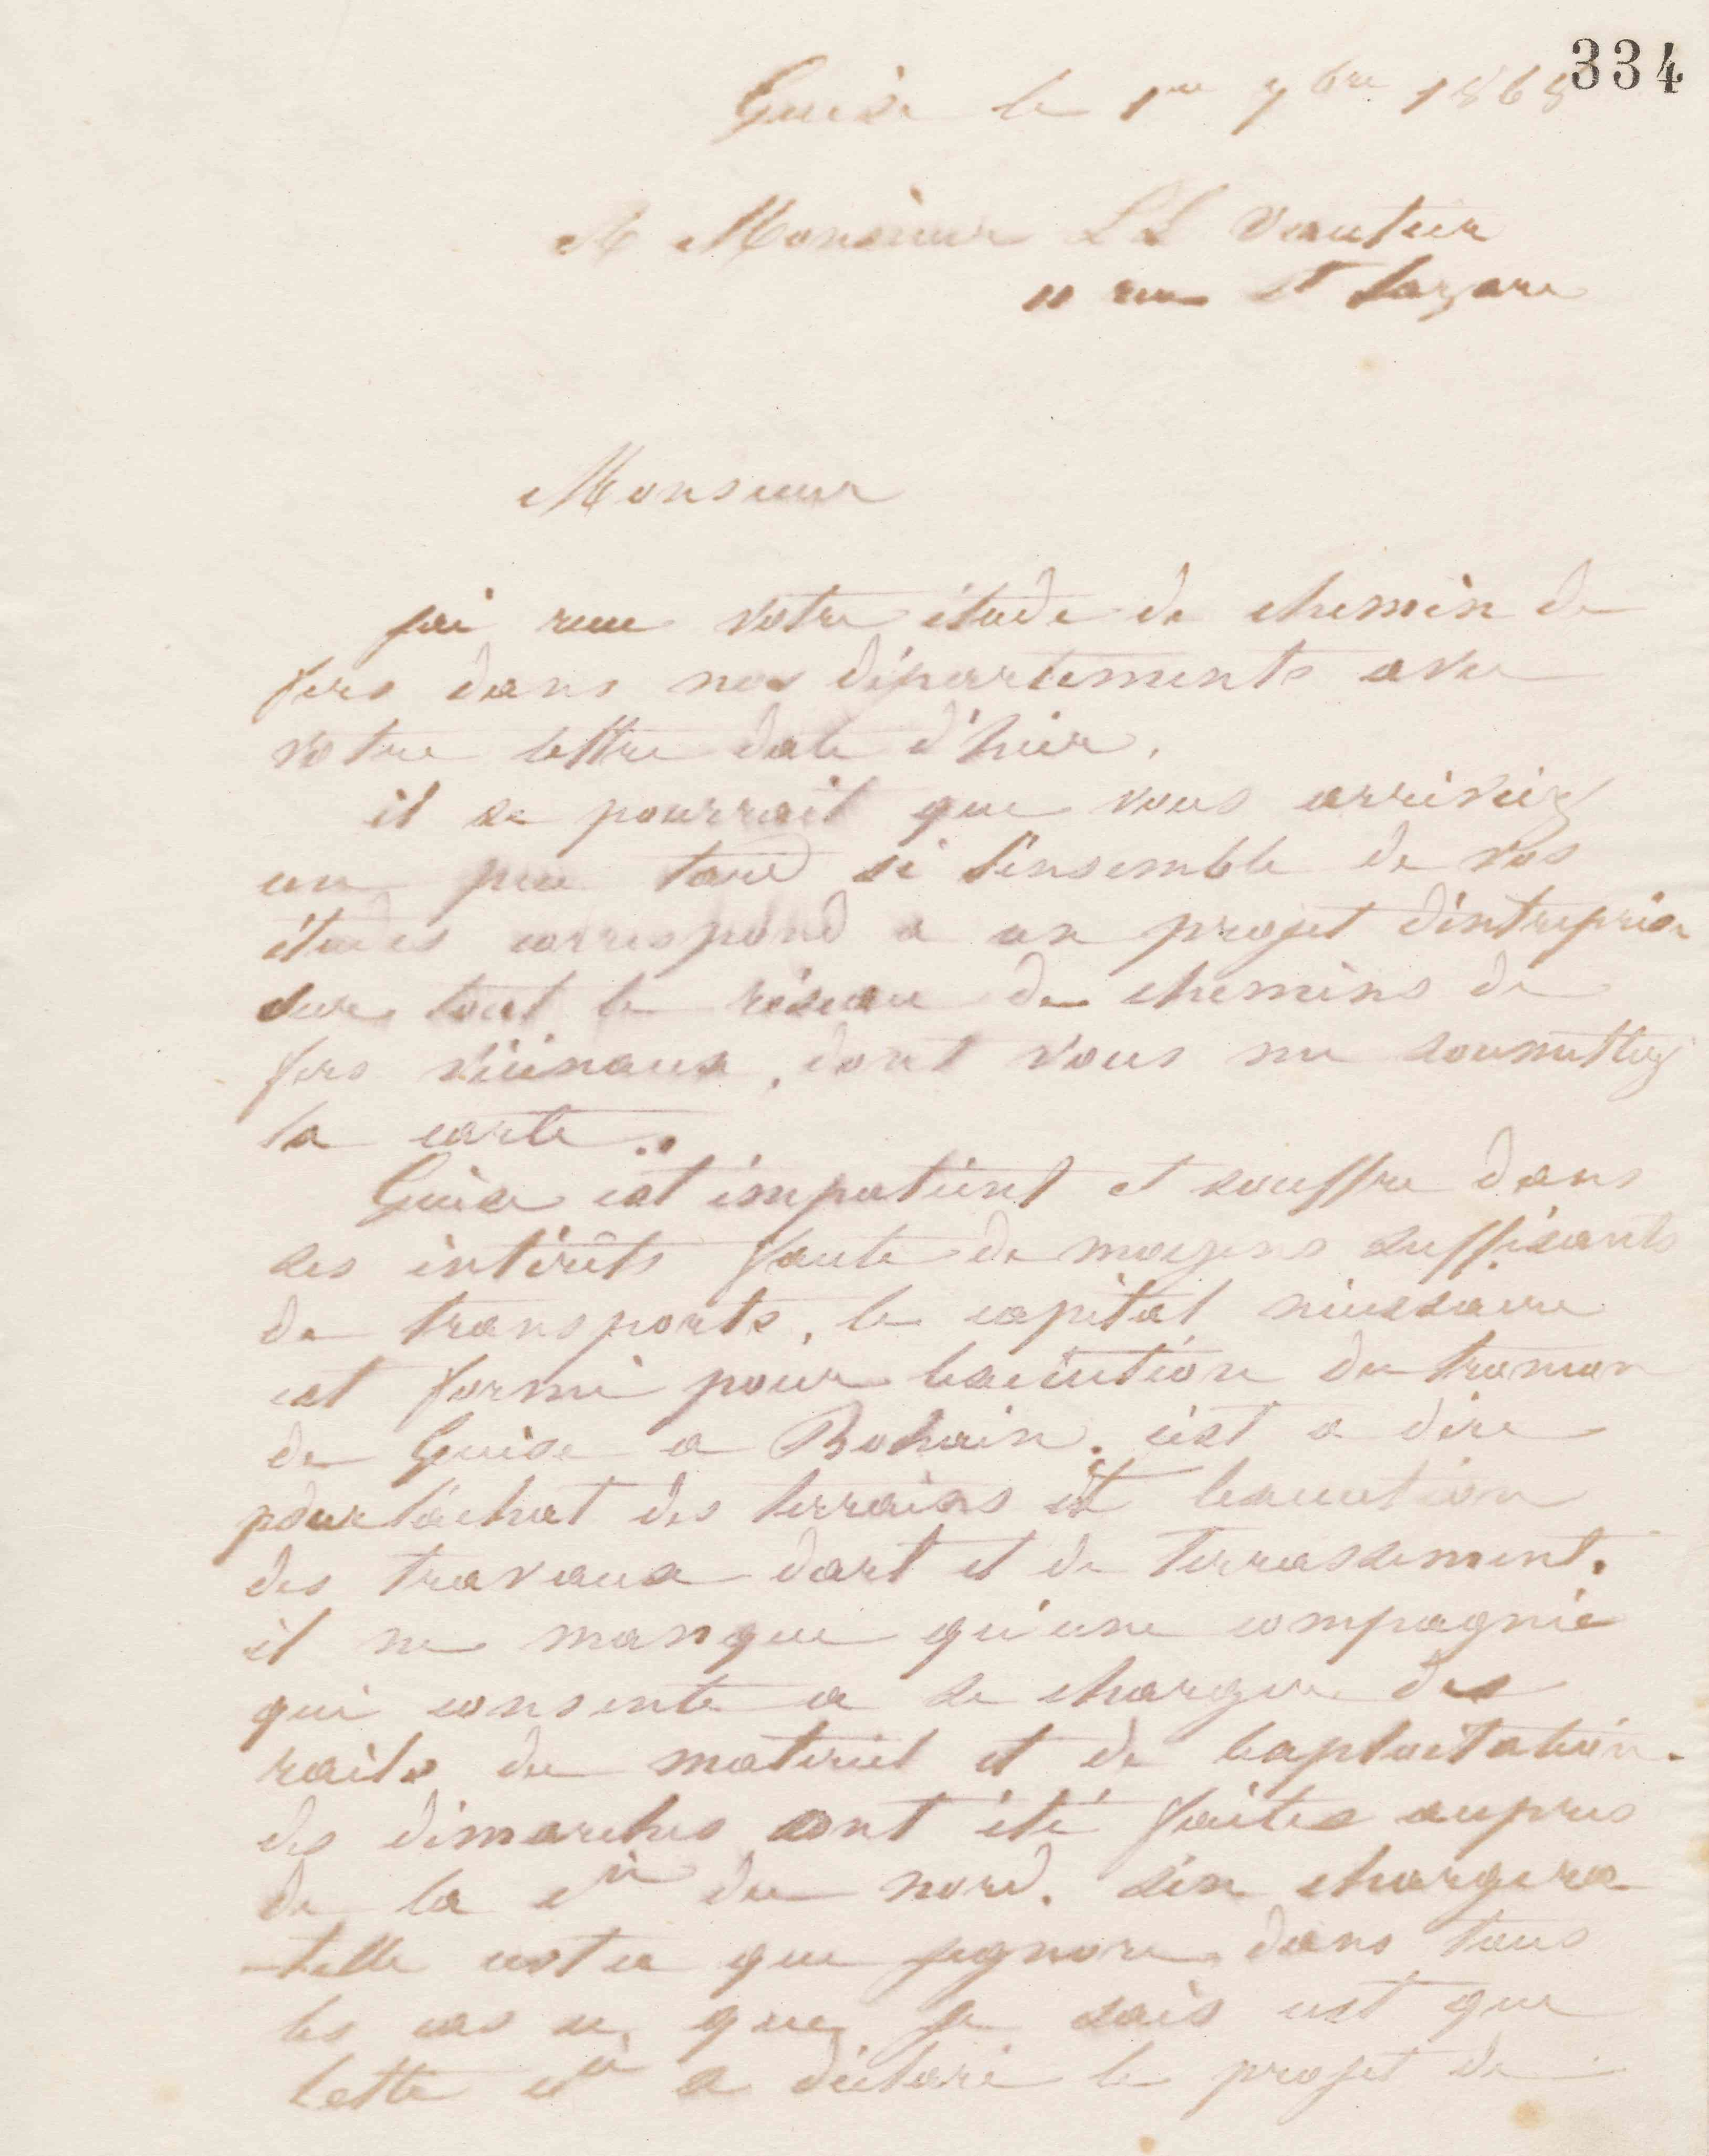 334
Guise le 1er 7bre 1868
A Monsieur LL Vautier
11 rue St Lazare
Monsieur
jai recu votre étude de chemin de
fers dans nos départements avec
votre lettre date d'hier.
il se pourrait que vous arriviez
un peu tard si l'ensemble de vos
études correspond a un projet d'intreprise
sur tout le réseau de chemins de
fers vicinaux, dont vous me soumettez
la carte.
Guise est impatient et souffre dans
ses intérêts faute de moyens suffisants
de transports, le capital nécessaire
est formé pour lexécution du troncon
de Guise a Bohain. cést a dire
pour lachat des terrains et lexecution
des travaux dart et de terrassement.
il ne manque qu'une compagnie
qui consente a se charger des
rails du matériel et de lexploitation.
des démarches ont été faites aupres
de la cie du nord. sen chargera
-telle cest ce que jignore dans tous
les cas ce que je sais cest que
cette cie a déclaré le projet de